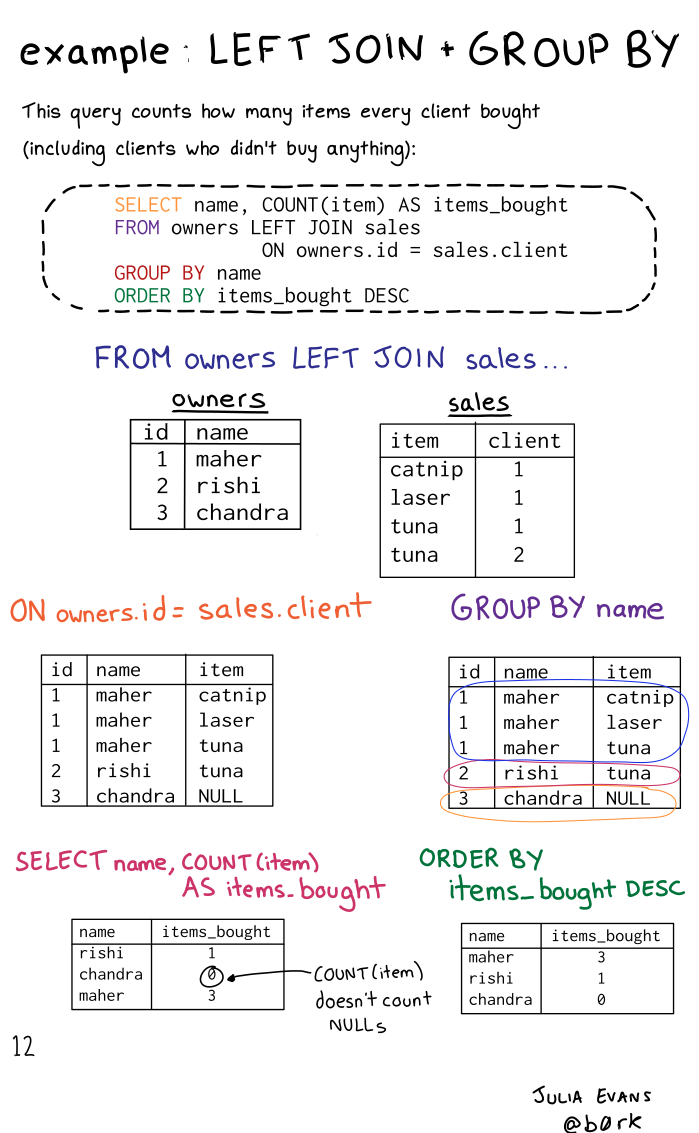 example: LEFT JOIN + GROUP BY
This query counts how many items every client bought
(including clients who didn't buy anything):
SELECT name, COUNT(item) AS items_bought
FROM owners LEFT JOIN sales
ON owners.id = sales.client
GROUP BY name
ORDER BY items_bought DESC
FROM owners LEFT JOIN sales...
owners
id name
1 maher
2 rishi
3 chandra
sales
item client
catnip 1
laser 1
tuna 1
tuna 2
ON owners.id = sales.client
id name item
1 maher catnip
1 maher laser
1 maher tuna
2 rishi tuna
3 chandra NULL
GROUP BY name
id name item
1 maher catnip
1 maher laser
1 maher tuna
2 rishi tuna
3 chandra NULL
SELECT name, COUNT(item)
AS items_bought
name items_bought
rishi 1
chandra 0
maher 3
COUNT(item)
doesn't count
NULLs
ORDER BY
items_bought DESC
name items_bought
maher 3
rishi 1
chandra 0
12
JULIA EVANS
@b0rk